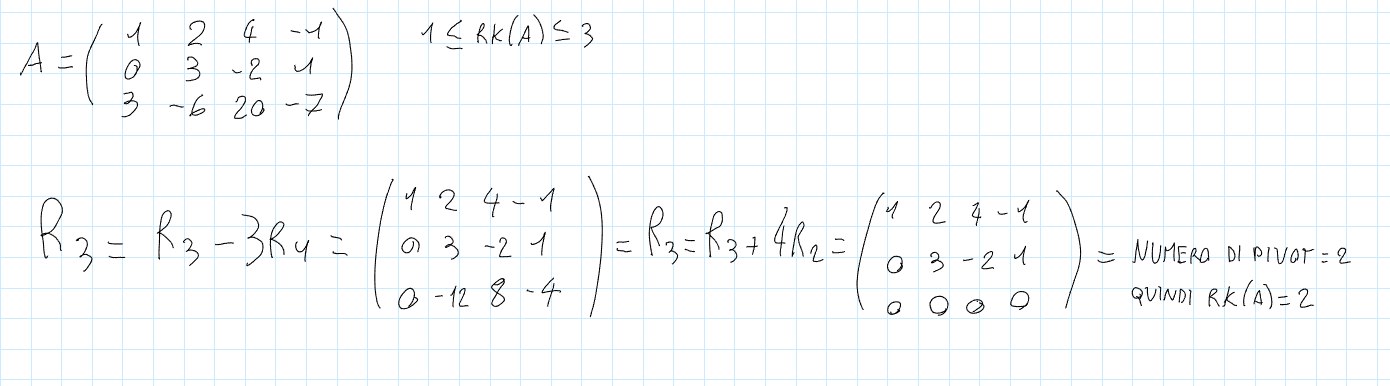 A = ( 1 2 4 -1 1 ≤ RK(A) ≤ 3
0 3 -2 1
3 -6 20 -7 )
R3 = R3 - 3R1 = ( 1 2 4 -1
0 3 -2 1
0 -12 8 -4 ) = R3 = R3 + 4R2 = ( 1 2 4 -1
0 3 -2 1
0 0 0 0 ) = NUMERO DI PIVOT = 2
QUINDI RK(A) = 2